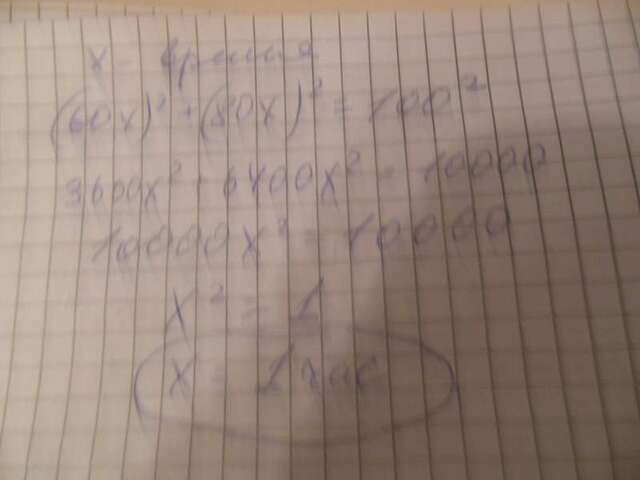 x - время
(60x)² + (80x)² = 100²
3600x² + 6400x² = 10000
10000x² = 10000
x² = 1
x = 1 час